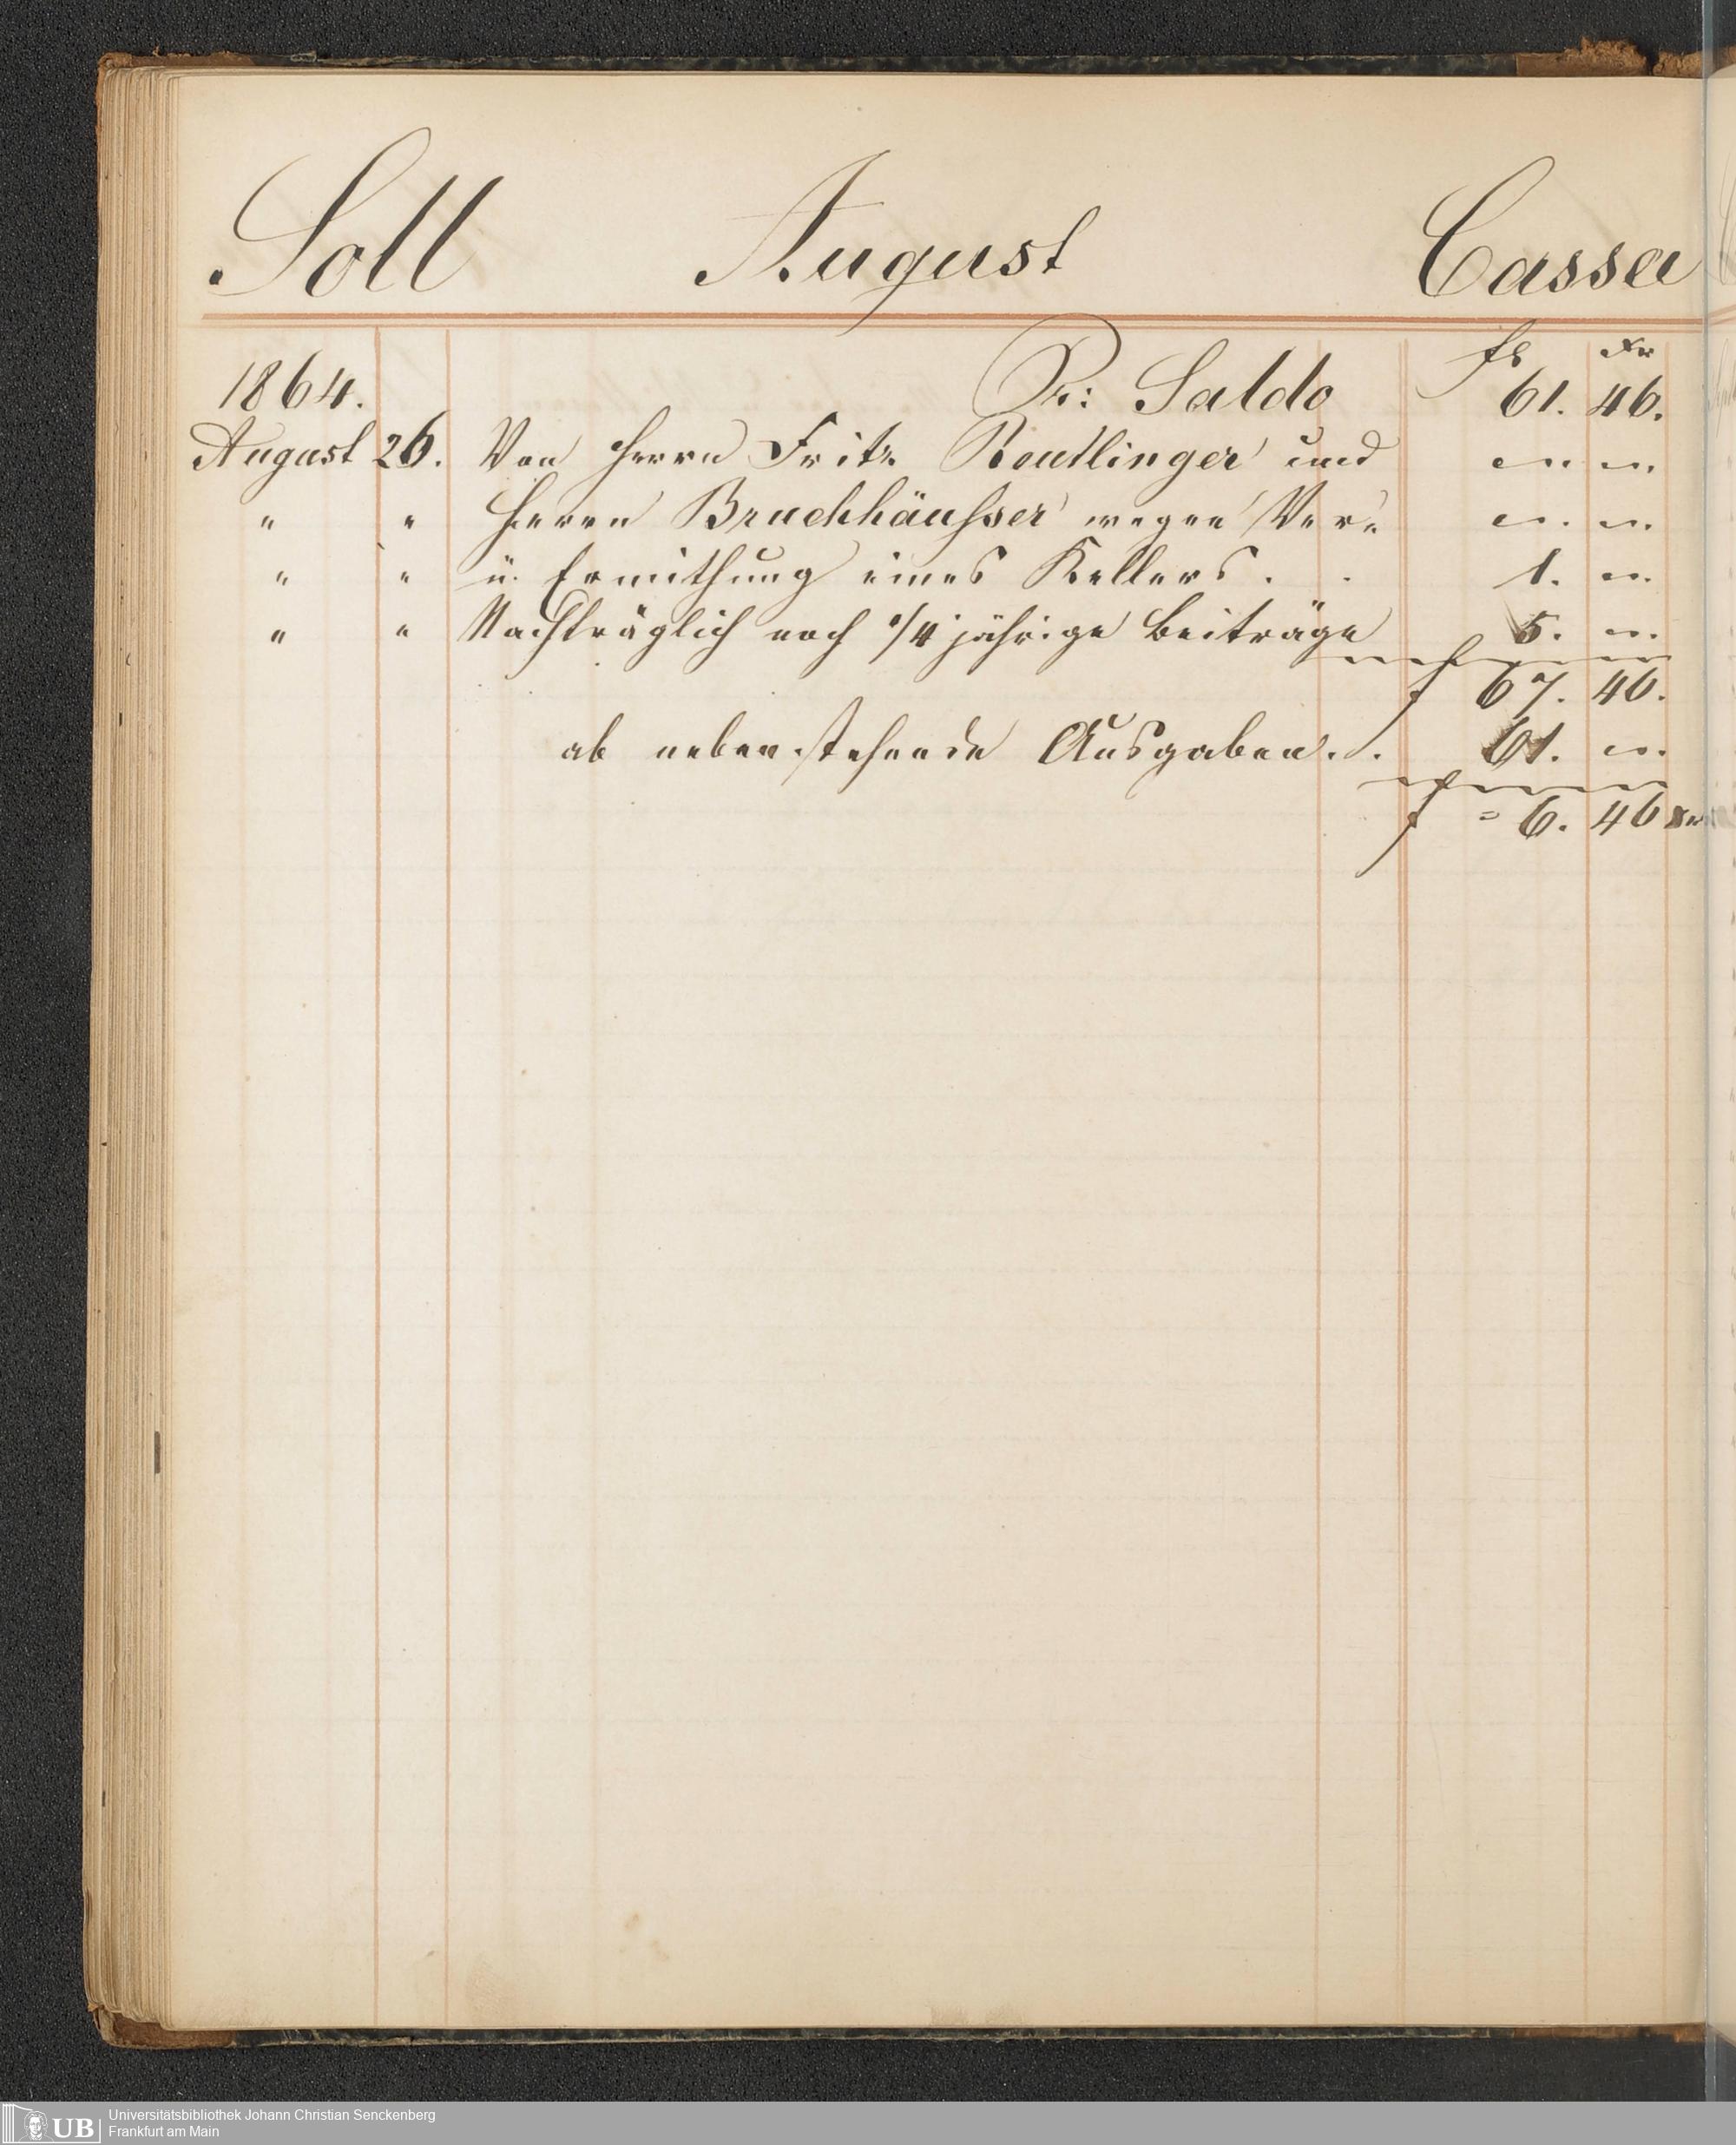 Soll August Cassa
fl Xr
1864. Pr: Saldo 61. 46.
August 26. Von Herrn Fritz Reutlinger und " "
" " Herrn Bruckhäusser wegen Ver= " "
" " u. Ermithung eines Kellers . . 1. "
" " Nachträglich noch 1/4 jährige Beiträge 5. "
f 67. 46.
ab nebenstehende Ausgaben . . 61. "
f = 6. 46 Xr
UB Universitätsbibliothek Johann Christian Senckenberg
Frankfurt am Main